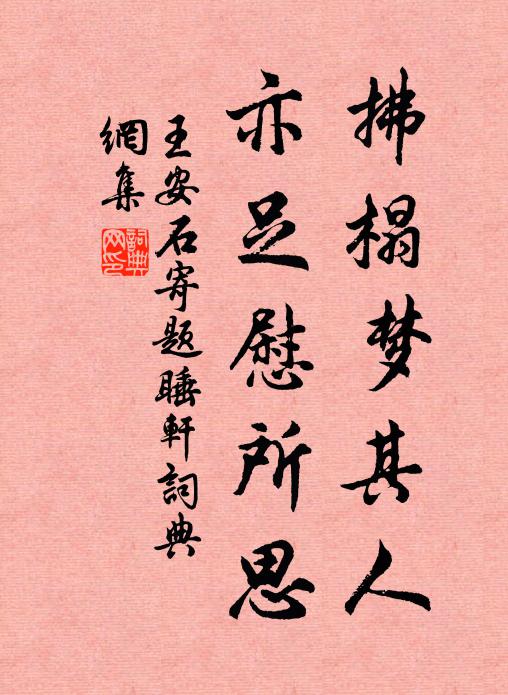 拂榻梦其人
亦足慰所思
王安石寄題睡軒詞典
網集
詞典
网印